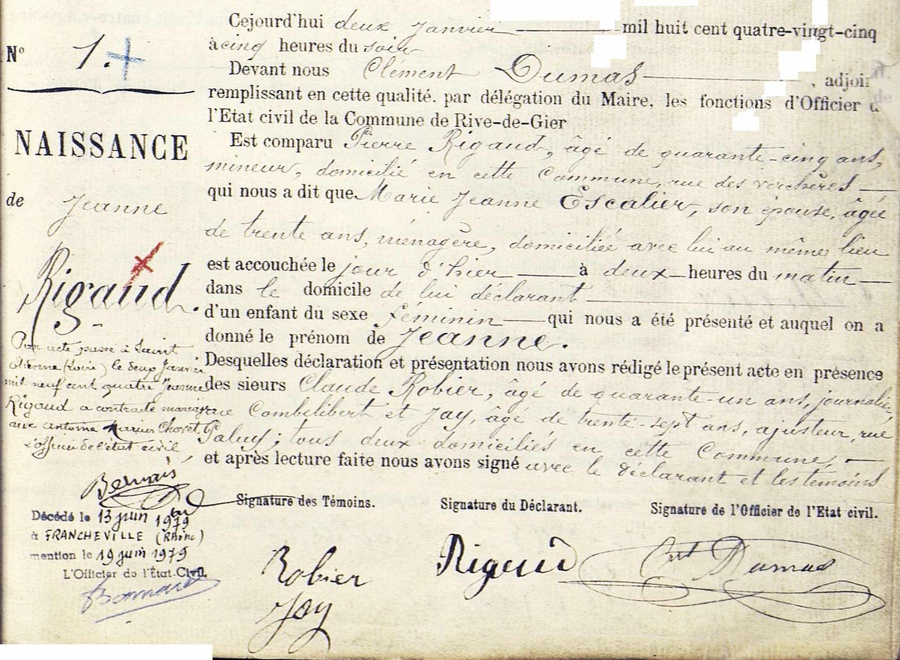 N° 1.
NAISSANCE
de Jeanne
Rigaud.
Par acte passé à Saint
Etienne (Loire) le
mil neuf cent quatre Jeanne
Rigaud a contracté mariage
avec Antoine Marius Chovet
L'officier de l'état civil
Décédé le 13 juin 1979
à FRANCHEVILLE (Rhône)
mention le 19 juin 1979
L'Officier de l'État-Civil,
Cejourd'hui deux Janvier mil huit cent quatre-vingt-cinq
à cinq heures du soir
Devant nous Clément Dumas, adjoin
remplissant en cette qualité, par délégation du Maire, les fonctions d'Officier d
l'Etat civil de la Commune de Rive-de-Gier
Est comparu Pierre Rigaud, âgé de quarante-cinq ans,
mineur, domicilié en cette Commune, rue des verchères
qui nous a dit que Marie Jeanne Escalier, son épouse, âgée
de trente ans, ménagère, domiciliée avec lui au même lieu
est accouchée le jour d'hier à deux heures du matin
dans le domicile de lui déclarant
d'un enfant du sexe féminin qui nous a été présenté et auquel on a
donné le prénom de Jeanne.
Desquelles déclaration et présentation nous avons rédigé le présent acte en présence
des sieurs Claude Robier, âgé de quarante-un ans, journalier,
rue Combelibert et Jay, âgé de trente-sept ans, ajusteur, rue
Paluy; tous deux domiciliés en cette Commune,
et après lecture faite nous avons signé avec le déclarant et les témoins
Signature des Témoins. Signature du Déclarant. Signature de l'Officier de l'Etat civil.
Robier Rigaud Dumas
Jay